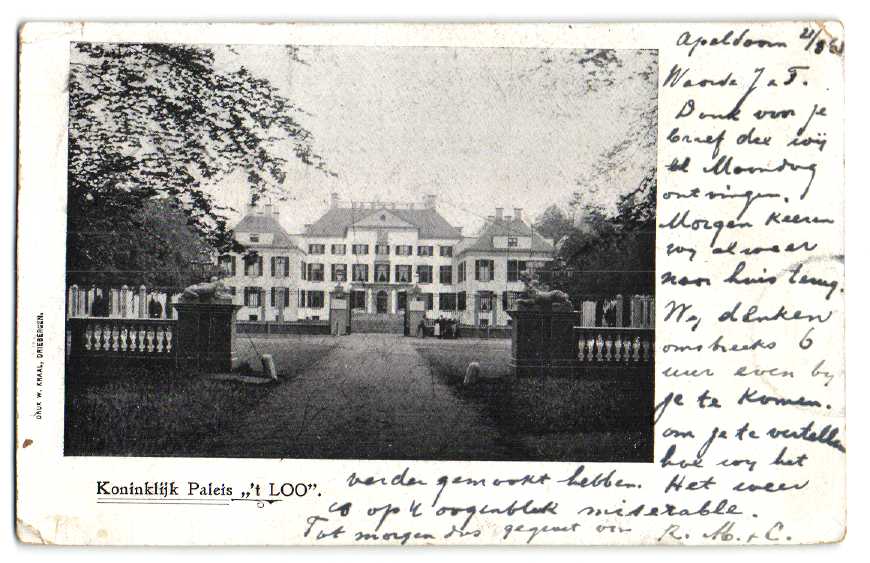 Apeldoorn 21/8
Waarde J & T.
Dank voor je
brief die wij
Maandag
ontvingen.
Morgen keeren
wij alweer
naar huis terug.
Wij denken
omstreeks 6
uur even bij
je te komen.
om je te vertellen
hoe wij het
verder gemaakt hebben. Het weer
is op 't oogenblik miserable.
Tot morgen dus gegroet van R. M. & C.
Koninklijk Paleis „'t LOO”.
DRUK W. KRAAL, DRIEBERGEN.